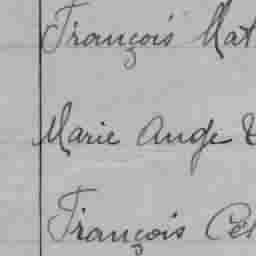 François Mat
Marie Ange
François Cés